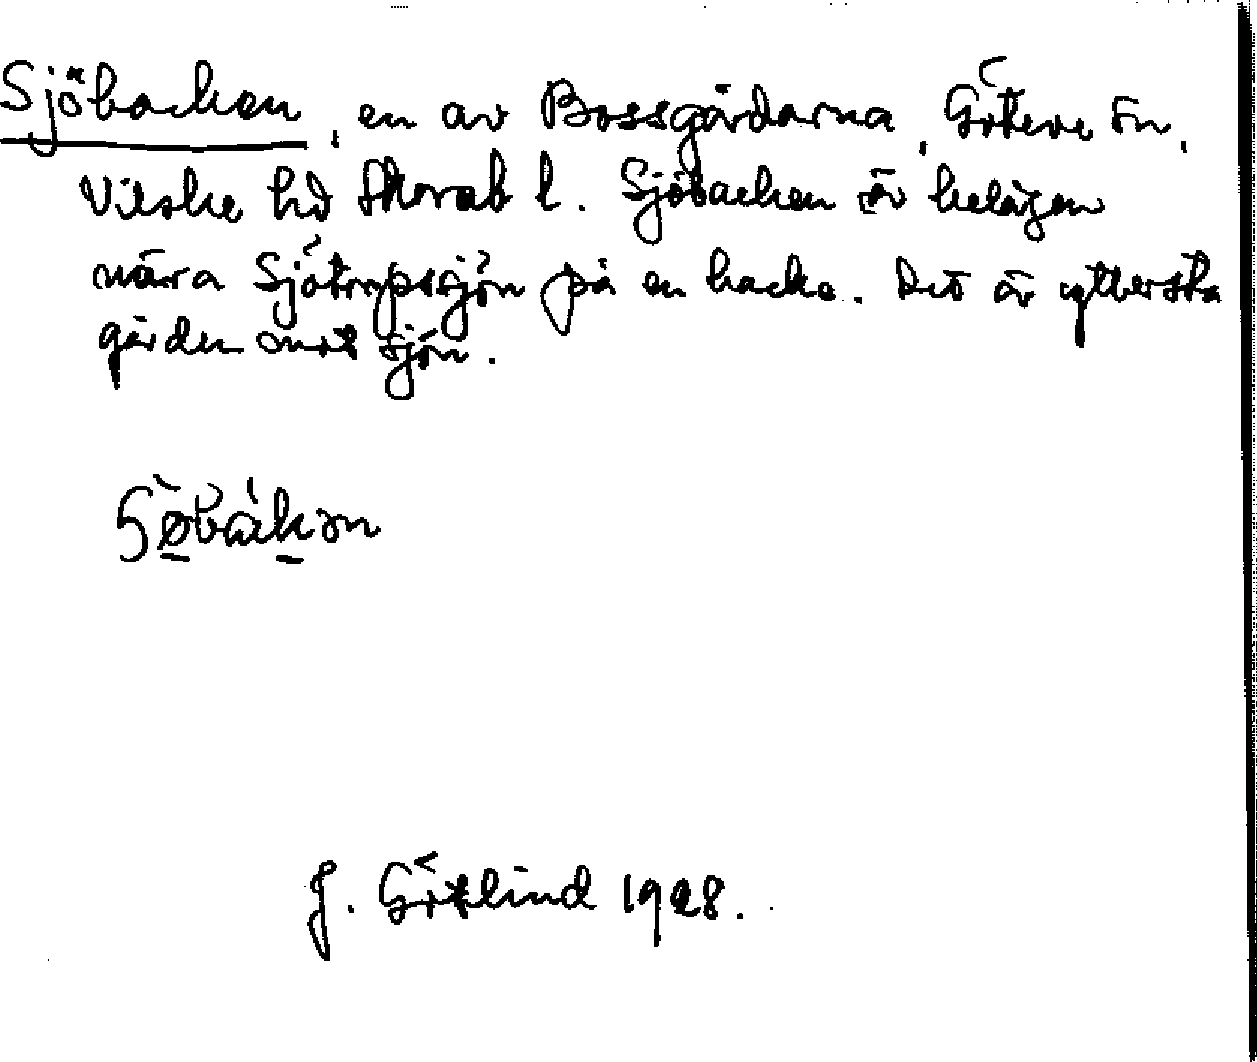 Sjöbacken, en av Bossgårdarna, Göteve sn,
Vilske hd Skarab l. Sjöbacken är belägen
nära Sjötorpssjön på en backe. Det är yttersta
gården mot sjön.
J. Götlind 1928.